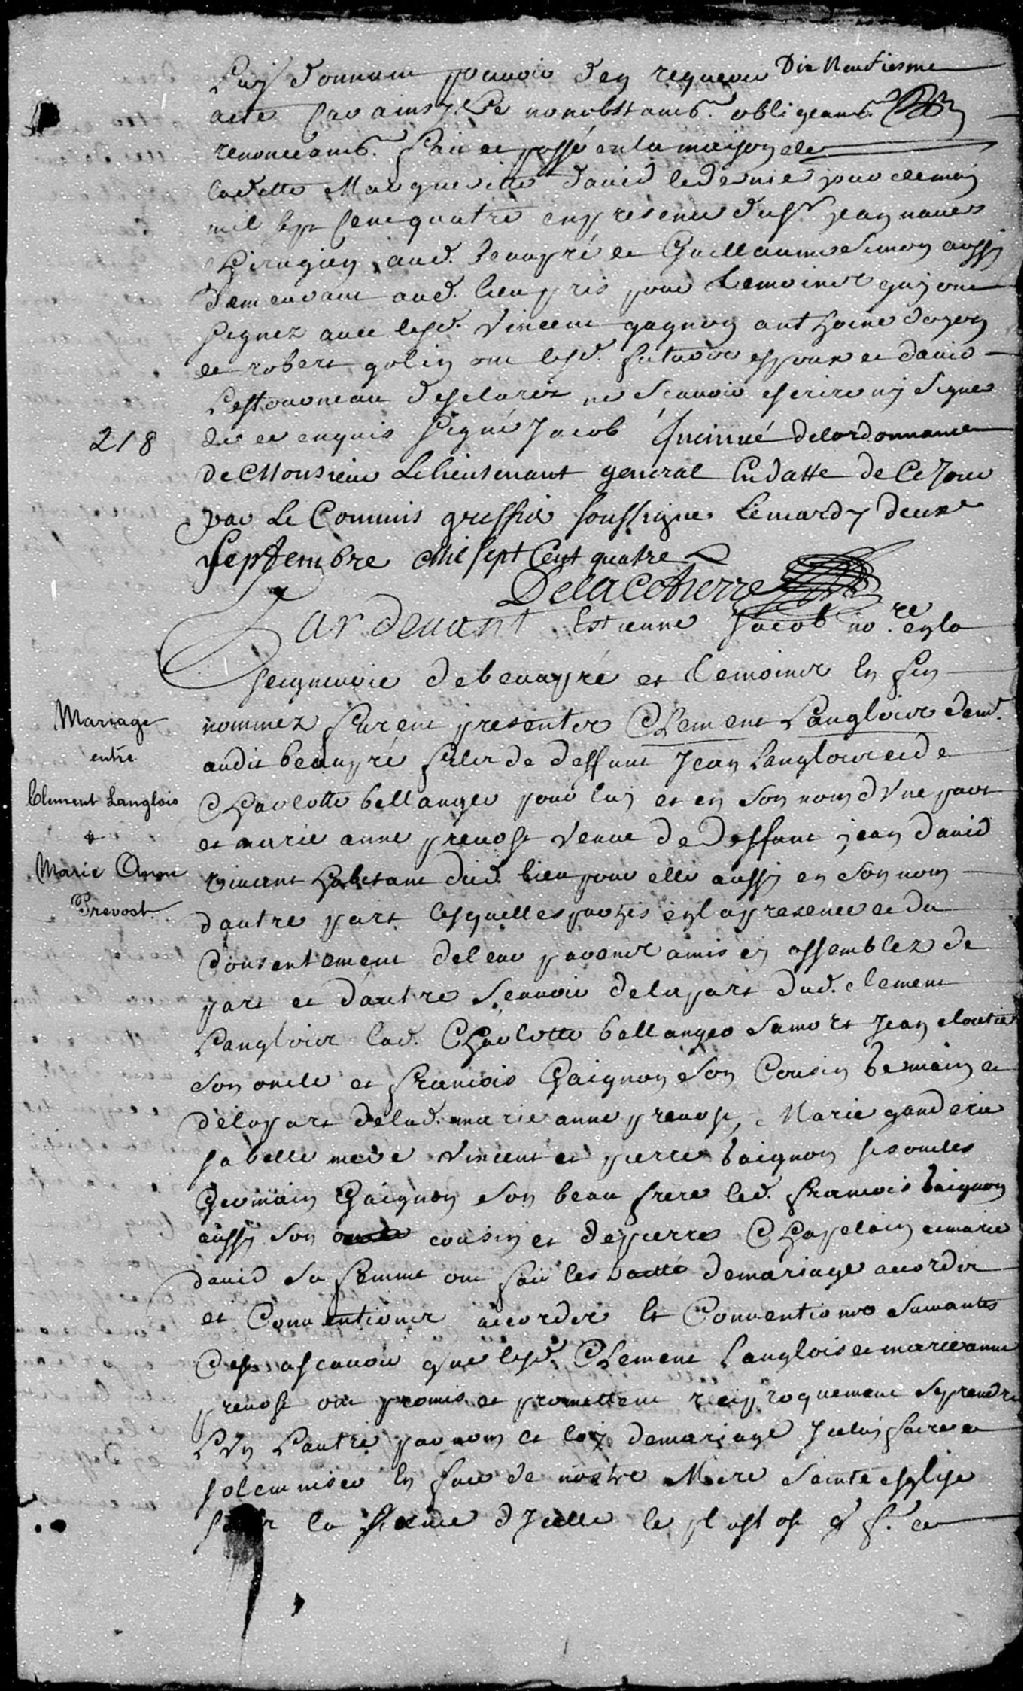 Luy donnant pouvoir den requerir Dix Neufiesme
acte Car ainsy &c nonobstant &c obligeant &c
renonceant &c fait et passé en la maison de
ladette Margueritte david le dernier jour de may
mil sept Cent quatre en presence du sr jean
Chirugien aud. beaupré et Guillaume Simon aussy
demeurant aud. lieu pris pour temoins quy ont
signez avec lesd. Vincent gagnon anthoine doyon
et robert golin ont lesd. futurs espoux et david
Lestourneau desclarez ne scavoir escrire ny signer
de ce enquis signé Jacob Insinué de lordonnance
218
de Monsieur Le lieutenant general En datte de Ce Jour
par Le Commis greffier soussigné Le mardy deuxe
Septembre Mil sept Cent quatre
Delacetierre
Pardevant Estienne Jacob no.re en la
seigneurie de beaupré et temoins En fin
nommez furent presenter Clement Langlois dem.
Mariage
entre
Clement Langlois
&
Marie Anne
Prevost
audit beaupré fils de deffunt Jean Langlois et de
Charlotte bellanger pour luy et en son nom d'Une part
et marie anne prevost Veuve de deffunt jean david
vivant habitant dud. lieu pour elle aussy en son nom
dautre part lesquelles partys en la presence et du
Consentement de leur parens amis assemblez de
part et dautre Scavoir de la part dud. clement
Langlois lad. Charlotte bellanger sa mere Jean cloutier
son oncle et francois Gaignon son Cousin Germain et
de la part de lad. marie anne prevost, Marie ganderin
sa belle mere Vincent et pierre Gaignon ses oncles
Germain Gaignon son beau frere led. francois Gaignon
aussy son cousin et de pierre Chapelain et marie
david sa femme ont fait les traitté de mariage accorder
et Conventions accorder et Conventions suivantes
Cest ascavoir que lesd. Clement Langlois et marie anne
prevost ont promis et promettent reciproquement se prendre
L'Un L'autre par nom et loy de mariage Iceluy faire et
solemniser En face de nostre Mere Sainte esglise
la d'Icelle le plustost q f. ce